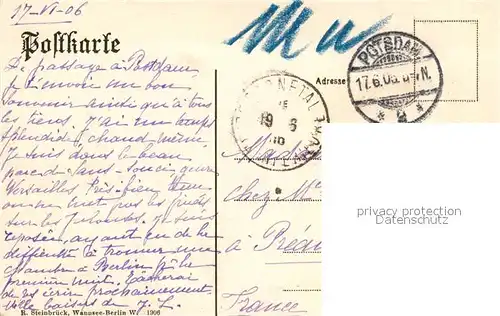 17-VI-06
Postkarte
De passage à Postdam
je t'envoie un bon
souvenir ainsi qu'à tous
les tiens. J'ai un temps
splendide, chaud même.
Je suis dans le beau
parc de Sans-Souci genre
Versailles très bien
on ne met pas les pieds
sur les pelouses. Je suis
reposée, ayant eu de la
difficulté à trouver une
chambre à Berlin p^r la
première nuit.
de vs écrire prochainement.
Mille baisers de
R. Steinbrück, Wannsee-Berlin W. 1906
Adresse
POTSDAM
17.6.06. N.
19 6
Mad
Chez M
à Préau
France
privacy protection
Datenschutz